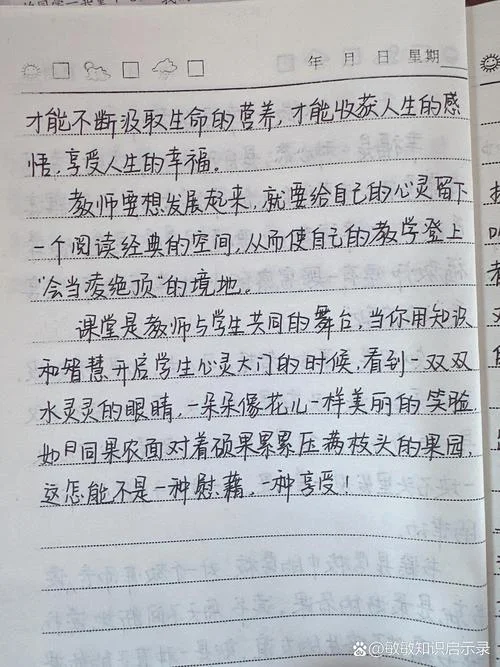 年 月 日 星期
才能不断汲取生命的营养,才能收获人生的感
悟,享受人生的幸福。
教师要想发展起来,就要给自己的心灵留下
一个阅读经典的空间,从而使自己的教学登上
“会当凌绝顶”的境地。
课堂是教师与学生共同的舞台,当你用知识
和智慧开启学生心灵大门的时候,看到一双双
水灵灵的眼睛,一朵朵像花儿一样美丽的笑脸,
如同果农面对着硕果累累压满枝头的果园,
这怎能不是一种慰藉,一种享受!
敏敏知识启示录